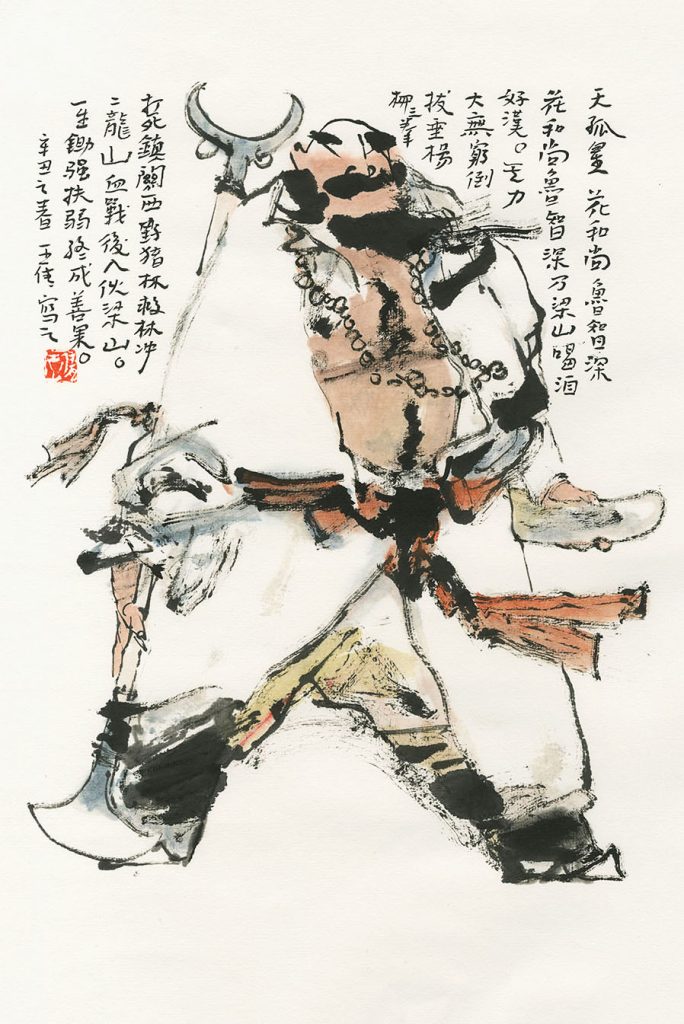 天孤星 花和尚魯智深
花和尚魯智深乃梁山喝酒
好漢。力
大無窮倒
拔垂楊
柳三拳
打死鎮關西野猪林救林冲
二龍山血戰後入伙梁山。
一生鋤强扶弱終成善果。
辛丑之春 王 寫之